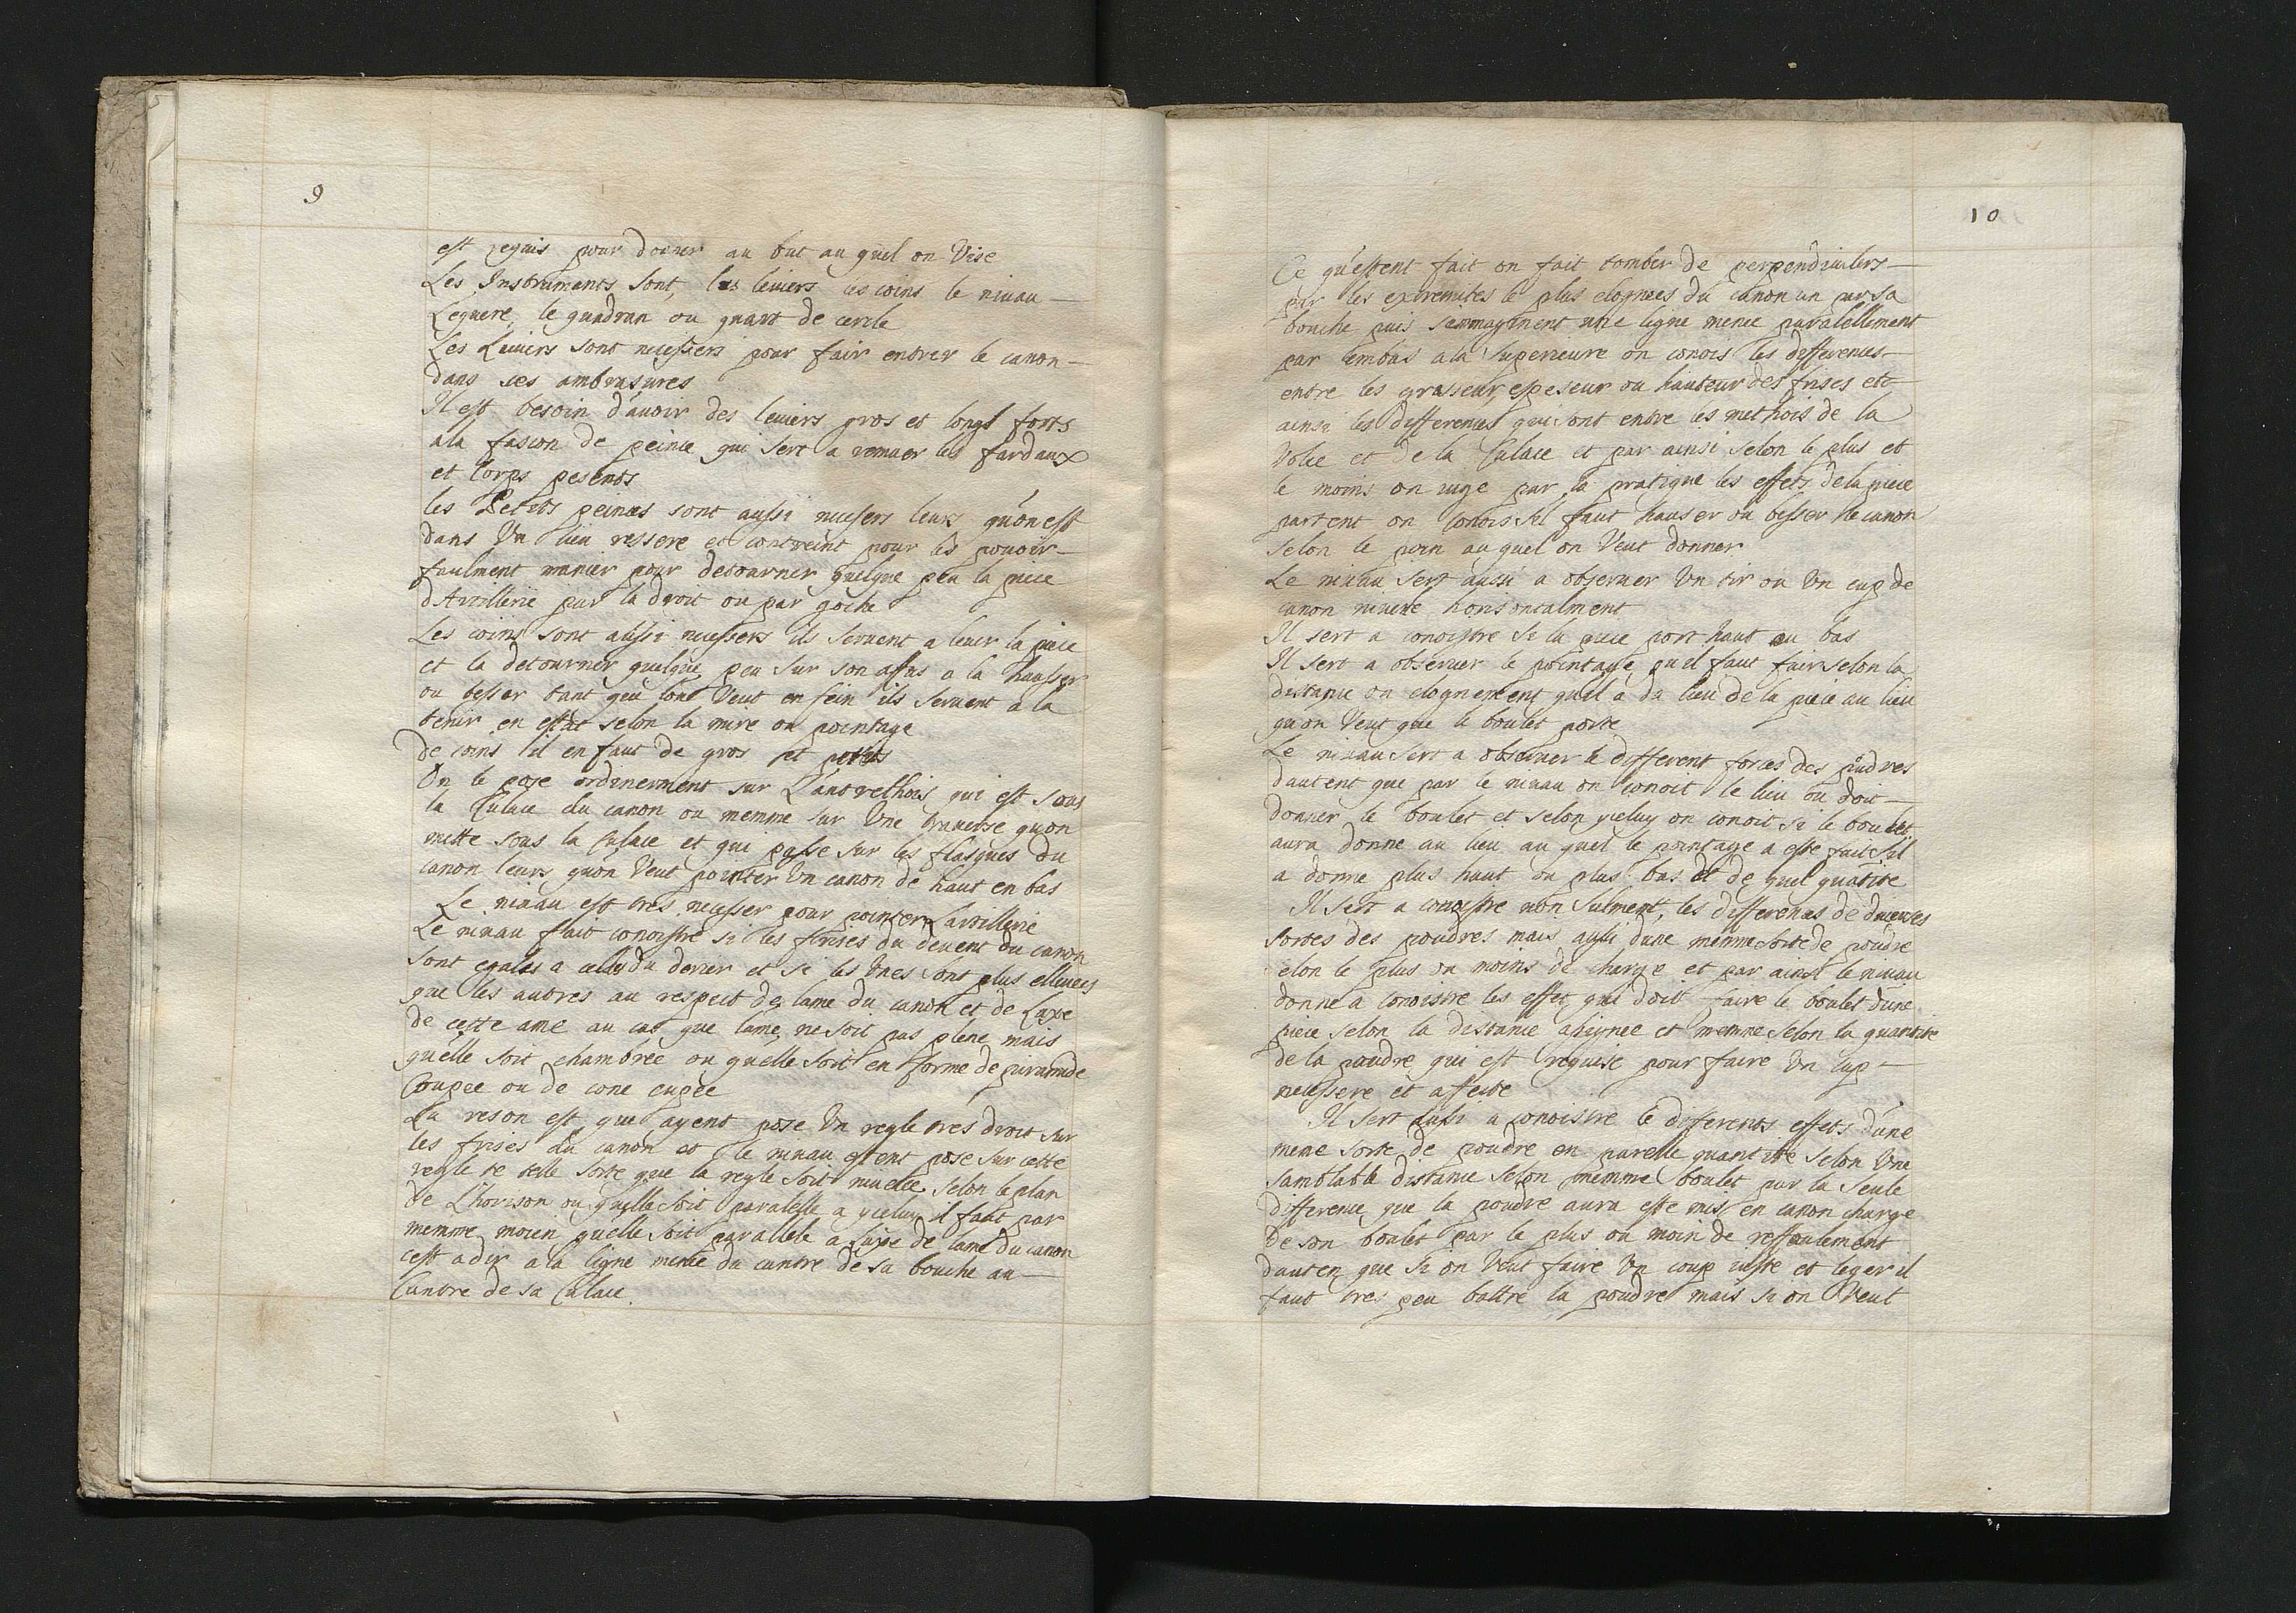 9
est requis pour doner au but au quel on Vise
Les Instruments sont, les leuiers les coins le niuau
Lequere, le quadran ou quart de cercle
Les Leuiers sont necessers pour fair entrer le canon
dans ses ambrasures
Il est besoin d'auoir des leuiers gros et longs forts
a la fascon de peince qui sert a remuer les fardaux
et Corps pesents
les Petits peinces sont aussi necessers leurs qu'on est
dans Un lieu ressere et contreint pour les pouoir
faulment manier pour detourner quelque peu la piece
dArtillerie par la droit ou par goche
Les coins sont aussi necessers ils seruent a leuer la piece
et la detourner quelque peu sur son affus a la hausser
ou besser tant que lont Veut en fein ils seruent a la
tenir en estat selon la mire ou pointage
De coins il en faut de gros et petits
On le pose ordinerment sur L'antrethois qui est sous
la Culace du canon ou memme sur Une trauerse quon
mette sous la Culace et qui passe sur les flasques du
canon leurs quon Veut pointer Un canon de haut en bas
Le niuau est tres necesser pour pointer Lartillerie
Le niuau fait conoistre si les frises du deuent du canon
sont egales a celles du derier et si les Unes sont plus elleuees
que les autres au respect de lame du canon et de Laxe
de cette ame au cas que lame ne soit pas plene mais
qu'elle soit chambree ou quelle soit en forme de piramide
Coupee ou de cone cupee
La reson est que ayent pose Un regle tres droit sur
les frises du canon et le niuau etent pose sur cette
regle de telle sorte que la regle soit niuelee selon le plan
de L'horison ou qu'elle soit paralelle a yceluy il faut par
memme moien qu'elle soit parallele a laxe de lame du canon
cest a dir a la ligne menee du cantre de sa bouche au
Cantre de sa Culace.
10
Ce qu'estent fait on fait tomber de perpendiculers
par les extremites le plus elognees du canon un par sa
bouche puis semmaginent une ligne menee paralellement
par lembas a la superieure on conois les differences
entre les grosseur espeseur ou hauteur des frises etc
ainsi les differences qui sont entre les methois de la
Volee et de la Culace et par ainsi selon le plus et
le moins on iuge par la pratique les effets de la piece
partent on conois sil faut hauser ou besser le canon
selon le poin au quel on Veut donner
Le niuau sert aussi a obseruer Un tir ou Un cup de
canon niuele horisontalment
Il sert a conoistre si la piece port haut ou bas
Il sert a obseruer le pointage qu'il faut fair selon la
distance ou elognement quil a du lieu de la piece au lieu
quon Veut que le boulet porte
Le niuau sert a obseruer le different forces des pudres
dautent que par le niuau on conoit le lieu ou doit
donner le boulet et selon yceluy on conoit si le boulet
aura donne au lieu au quel le pointage a este fait sil
a donne plus haut ou plus bas et de quel quatite
Il sert a conoistre non sulment, les differences de diuerses
sortes des poudres mais aussi dune memme sorte de poudre
selon le plus ou moins de charge et par ainsi le niuau
donne a conoistre les effet qui doit faire le boulet dune
piece selon la distance assignee et memme selon la quantite
de la poudre qui est requise pour faire Un cup
necessere et affecte
Il sert aussi a conoistre le differents effets d'une
meme sorte de poudre en parelle quantite selon Une
samblable distance selon memme boulet par la seule
difference que la poudre aura este mis en canon charge
de son boulet par le plus ou moin de reffoulement
dauten que si on Veut faire Un coup iuste et leger il
faut tres peu battre la poudre mais si on Veut